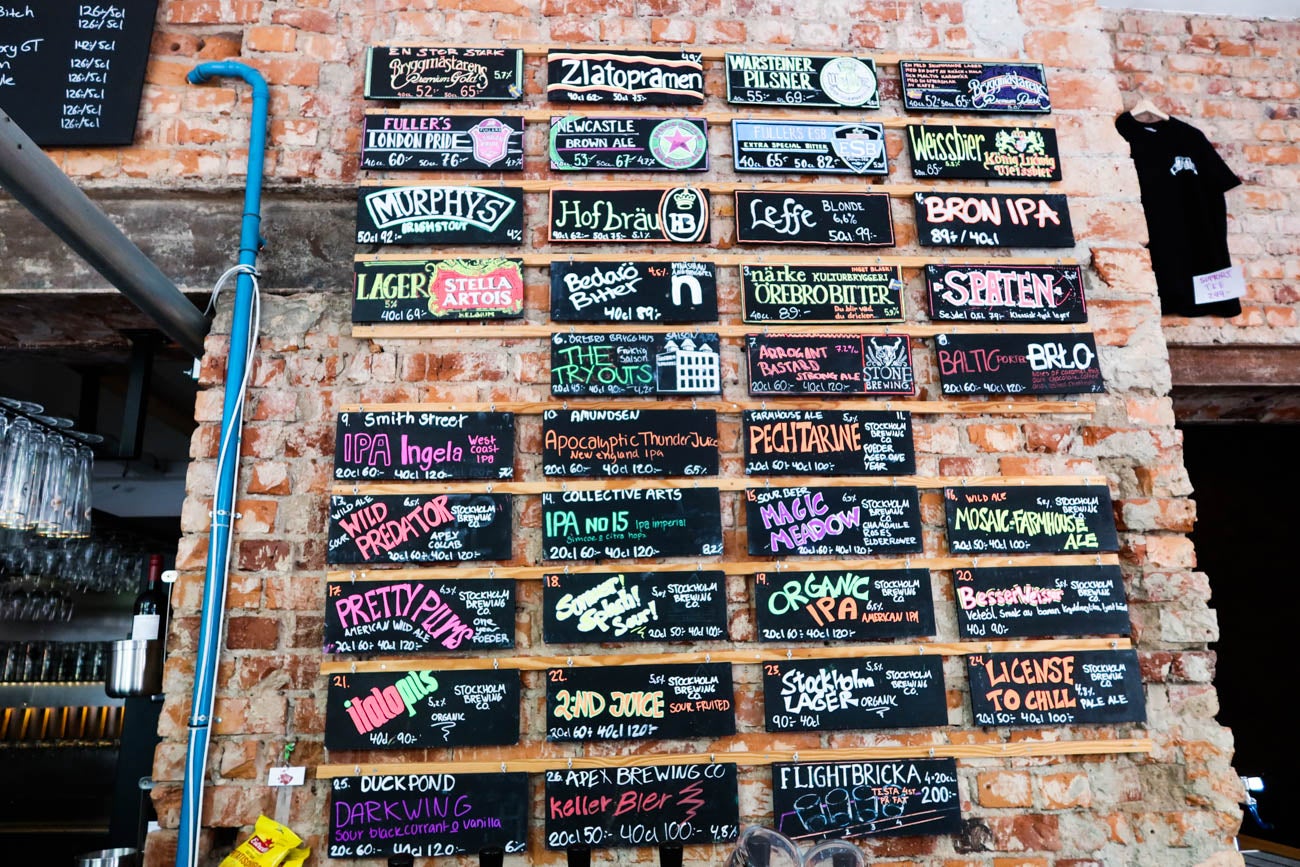 Bitch 126:-/5cl
126:-/5cl
oxy GT 142:-/5cl
126:-/5cl
126:-/5cl
126:-/5cl
126:-/5cl
EN STOR STARK
Bryggmästarens
Premium Gold 5.7%
52:- 65:-
4,9%
Zlatopramen
40cl 62:- 50cl 75:-
WARSTEINER
PILSNER
55:- 69:-
Bryggmästarens
Premium Dark
40cl 52:- 65:-
FULLER'S
LONDON PRIDE
40cl 60:- 50cl 76:- 4,7%
NEWCASTLE
BROWN ALE
40cl 53:- 50cl 67:- 4.7%
FULLERS ESB
EXTRA SPECIAL BITTER
40cl 65:- 50cl 82:-
ESB
Weissbier
König Ludwig
Weissbier
50cl 85:-
MURPHY'S
IRISH STOUT
50cl 92:- 4%
Hofbräu HB
40cl 62:- 50cl 75:- 5.1%
Leffe BLONDE
6,6%
50cl 99:-
BRON IPA
89:-/40cl
LAGER
5%
40cl 69:-
STELLA
ARTOIS
BELGIUM
Bedarö
Bitter
4,5%
n
40cl 89:-
3. närke KULTURBRYGGERI
ÖREBRO BITTER
40cl 89:- Du blir vad
du dricker... 5,9%
SPATEN
79:-
6. ÖREBRO BRYGGHUS
THE
TRYOUTS
Fruktig
Saison
SAISON
20cl 45:- 40cl 90:- 4,2%
7. ARROGANT
BASTARD
STRONG ALE
7.2%
STONE
BREWING
20cl 60:- 40cl 120:-
8. BALTIC PORTER BRLO
20cl 60:- 40cl 120:- 7%
9. Smith Street
IPA Ingela West
Coast
IPA
20cl 60:- 40cl 120:- 7%
10. AMUNDSEN
Apocalyptic Thunder Juice
New england Ipa
20cl 60:- 40cl 120:- 6.5%
FARMHOUSE ALE 11.
PECHTARINE
STOCKHOLM
BREWING
CO.
FOEDER
AGED ONE
YEAR
20cl 60:- 40cl 100:-
13. WILD ALE 6,5%
SOUR
WILD
PREDATOR
STOCKHOLM
BREWING
CO.
APEX
COLLAB
20cl 60:- 40cl 120:-
14. COLLECTIVE ARTS
IPA NO 15 Ipa imperial
Simcoe & citra hops
20cl 60:- 40cl 120:- 8,2%
15. SOUR BEER
MAGIC
MEADOW
STOCKHOLM
BREWING
CO.
CHAMOMILE
ROSES
ELDERFLOWER
20cl 60:- 40cl 120:-
16. WILD ALE
STOCKHOLM
BREWING
CO.
MOSAIC-FARMHOUSE
ALE
20cl 50:- 40cl 100:-
17. 6,3%
PRETTY PLUMS
AMERICAN WILD ALE
STOCKHOLM
BREWING
CO.
one
year
FOEDER
20cl 60:- 40cl 120:-
18. Summer
Splash!
Sour!
STOCKHOLM
BREWING
CO.
20cl 50:- 40cl 100:-
19. ORGANIC
IPA 6,5%
STOCKHOLM
BREWING
CO.
AMERICAN IPA
20cl 60:- 40cl 120:-
20. BesserWeisse
STOCKHOLM
BREWING
CO.
40cl 90:-
21. italopils
5,2%
STOCKHOLM
BREWING
CO.
ORGANIC
40cl 90:-
22. 2:ND JUICE
5,5%
STOCKHOLM
BREWING
CO.
SOUR FRUITED
20cl 60:- 40cl 120:-
23. Stockholm
LAGER
5,5%
STOCKHOLM
BREWING
CO.
ORGANIC
90:- 40cl
24. LICENSE
TO CHILL
STOCKHOLM
BREWING
CO.
4,8%
PALE ALE
20cl 50:- 40cl 100:-
25. DUCKPOND
DARKWING
Sour blackcurrant & vanilla
6.- 40cl 120:-
26. APEX BREWING CO
Keller Bier
20cl 50:- 40cl 100:- 4,8%
FLIGHTBRICKA 4-20cl.
TESTA 4ST
PÅ FAT 200:-
1 2 3 4
SUPPORT
TEE
299:-